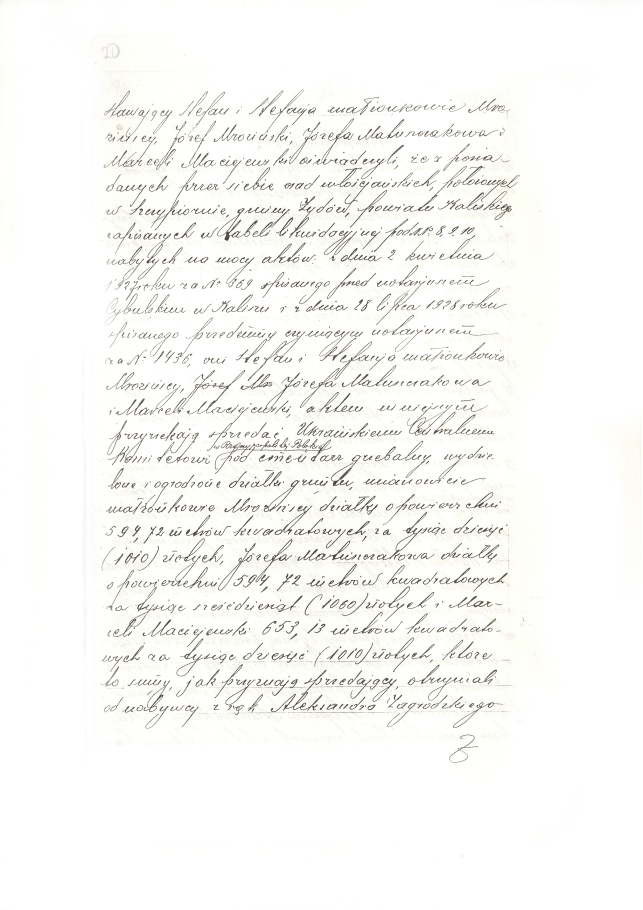 20
stawający Stefan i Stefanja małżonkowie Mro-
zińscy, Józef Mroziński, Józefa Matuszczakowa i
Marceli Maciejewski oświadczyli, że z posia-
danych przez siebie osad włościańskich, położonych
w Szczypiornie, gminy Żydów, powiatu Kaliskiego
zapisanych w tabeli likwidacyjnej pod NN: 8, 9 10,
nabytych na mocy aktów: z dnia 2 kwietnia
1927 roku za No 369 spisanego przed notarjuszem
Cybulskim w Kaliszu i z dnia 28 lipca 1928 roku
spisanego przedemną czyniącym notarjuszem
za No 1436, oni Stefan i Stefanja małżonkowie
Mrozińscy, Józef Mro Józefa Matuszczakowa
i Marceli Maciejewski, aktem niniejszym
przyrzekają sprzedać Ukraińskiemu Centralnemu
w Rzeczypospolitej Polskiej
Komitetowi pod cmentarz grzebalny, wydzie-
lone i ogrodzone działki gruntu, mianowicie
małżonkowie Mrozińscy działkę o powierzchni
594,72 metrów kwadratowych, za tysiąc dziesięć
(1010) złotych, Józefa Matuszczakowa działkę
o powierzchni 594,72 metrów kwadratowych
za tysiąc sześćdziesiąt (1060) złotych i Mar-
celi Maciejewski 653,13 metrów kwadrato-
wych za tysiąc dziesięć (1010) złotych, które
to sumy, jak przyznają sprzedający, otrzymali
od nabywcy z rąk Aleksandra Zagrodzkiego